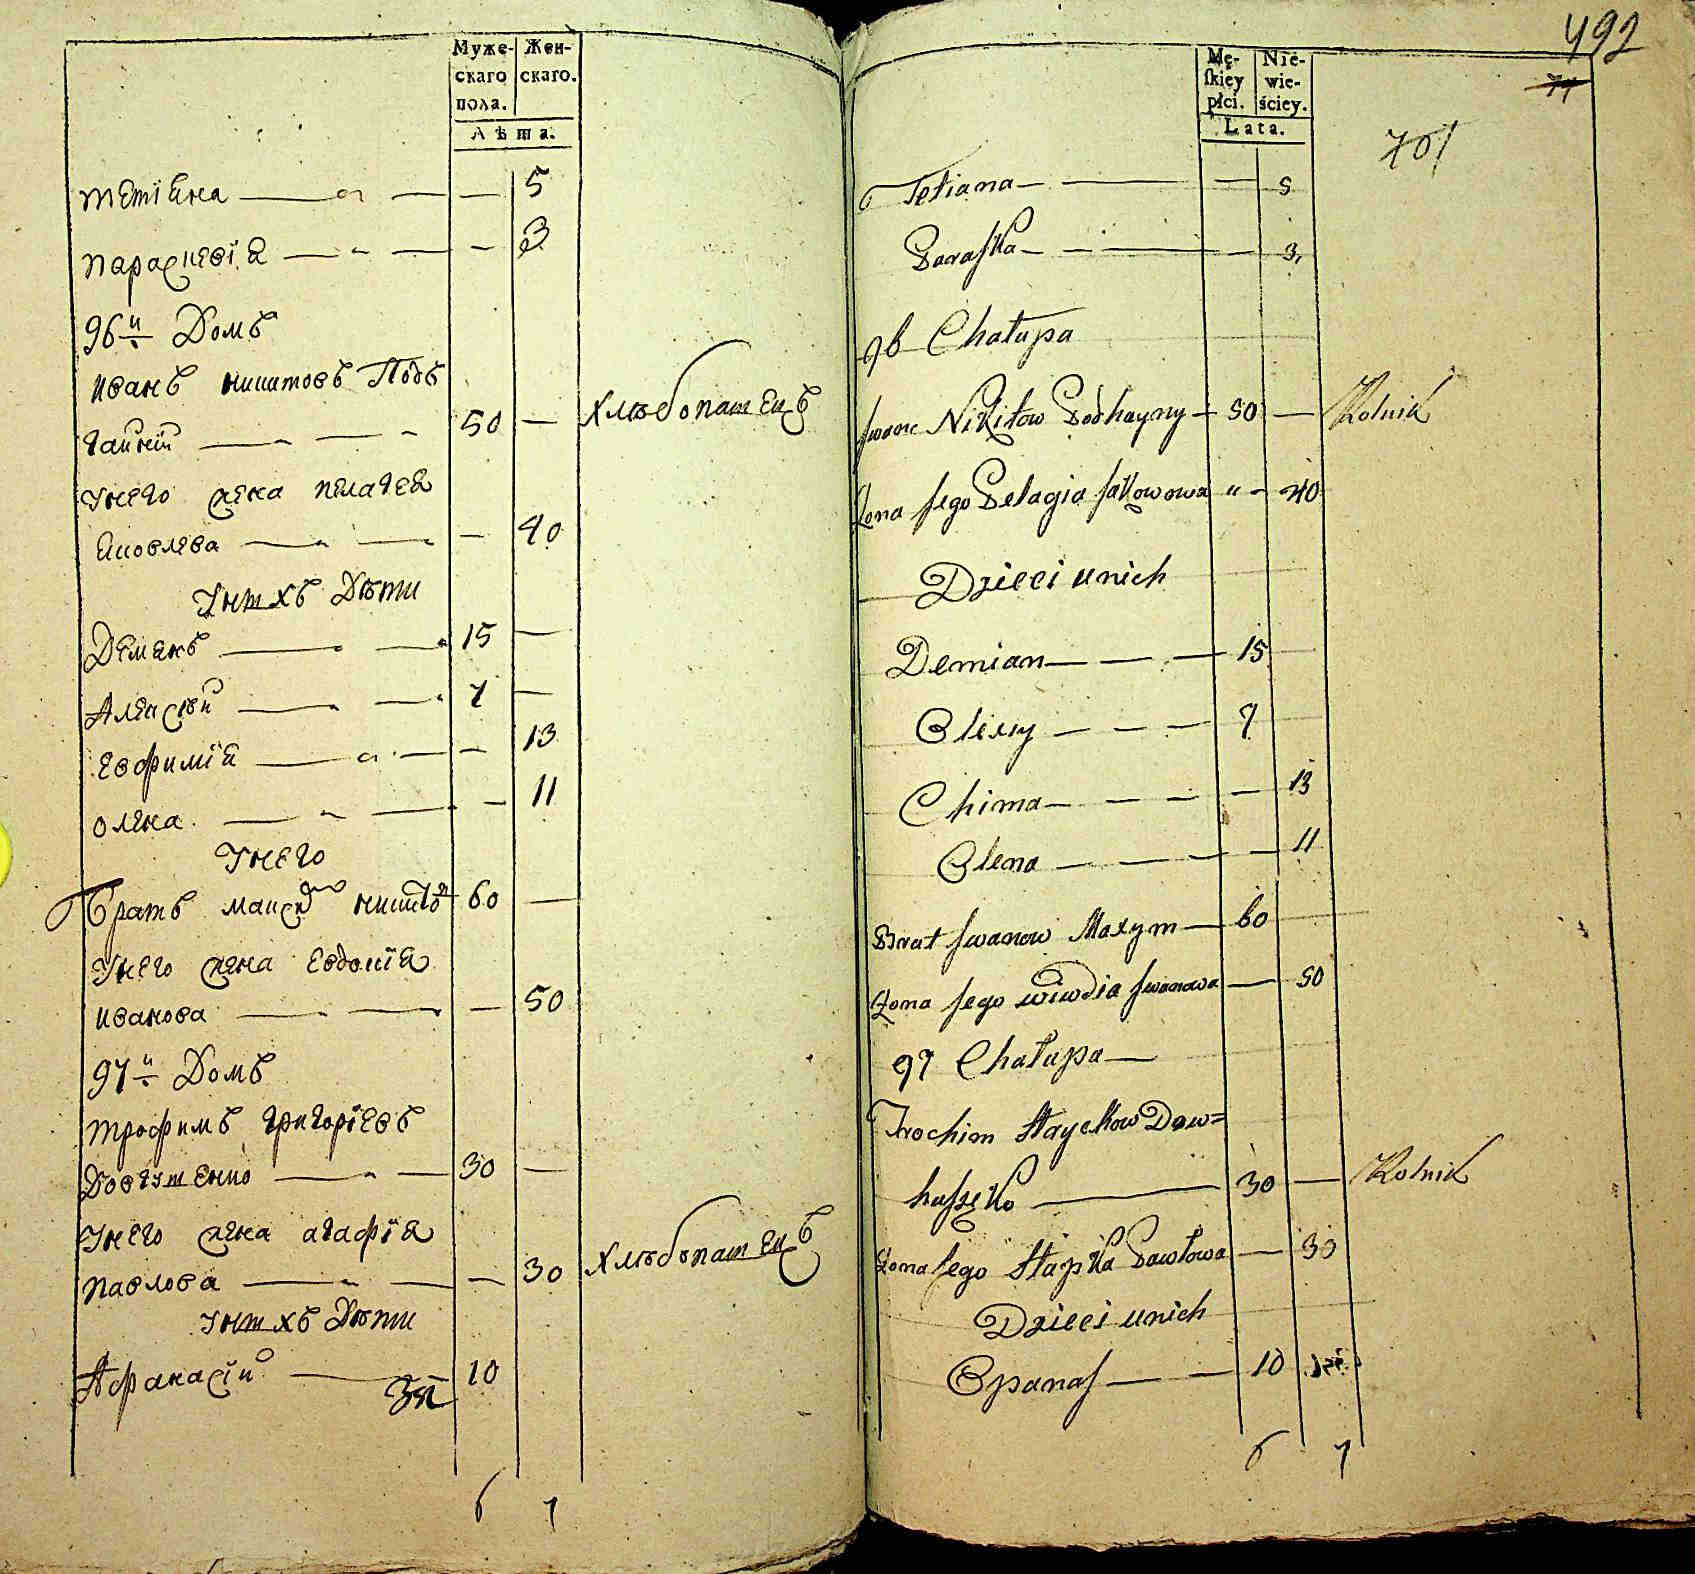 Муже-
скаго
пола.
Жен-
скаго.
Лѣта.
тетіяна 5
параскевія 3
96й Домъ
иванъ никитовъ Подъ
гайній 50 — хлѣбопашецъ
унего жена пелагея
яковлева — 40
унихъ Дѣти
Демянъ 15 —
Алексѣй 7 —
евфимія — 13
олена — 11
унего
Братъ максим никитов 60 —
унего жена евдокія
иванова — 50
97й Домъ
трофимъ григоріевъ
Довгушенко 30 —
унего жена агафія
павлова — 30 хлѣбопашецъ
унихъ Дѣти
Афанасій 10
6 7
492
71
701
Mę-
ſkiey
płci.
Nie-
wie-
ściey.
Lata.
Tetiana — 5
Paraſka — 3
96 Chałupa
Iwan Nikitow Podhayny 50 — Rolnik
Żona Jego Pelagia Jakowowa " 40
Dzieci unich
Demian 15
Olexy 7
Chima — 13
Olena — 11
Brat Iwanow Maxym 60
Żona Jego wiwdia Iwanowa — 50
97 Chałupa —
Trochim Hayckow Dow=
huſzęko 30 — Rolnik
Żona Jego Hapka Pawłowa — 30
Dzieci unich
Opanaſ 10
6 7